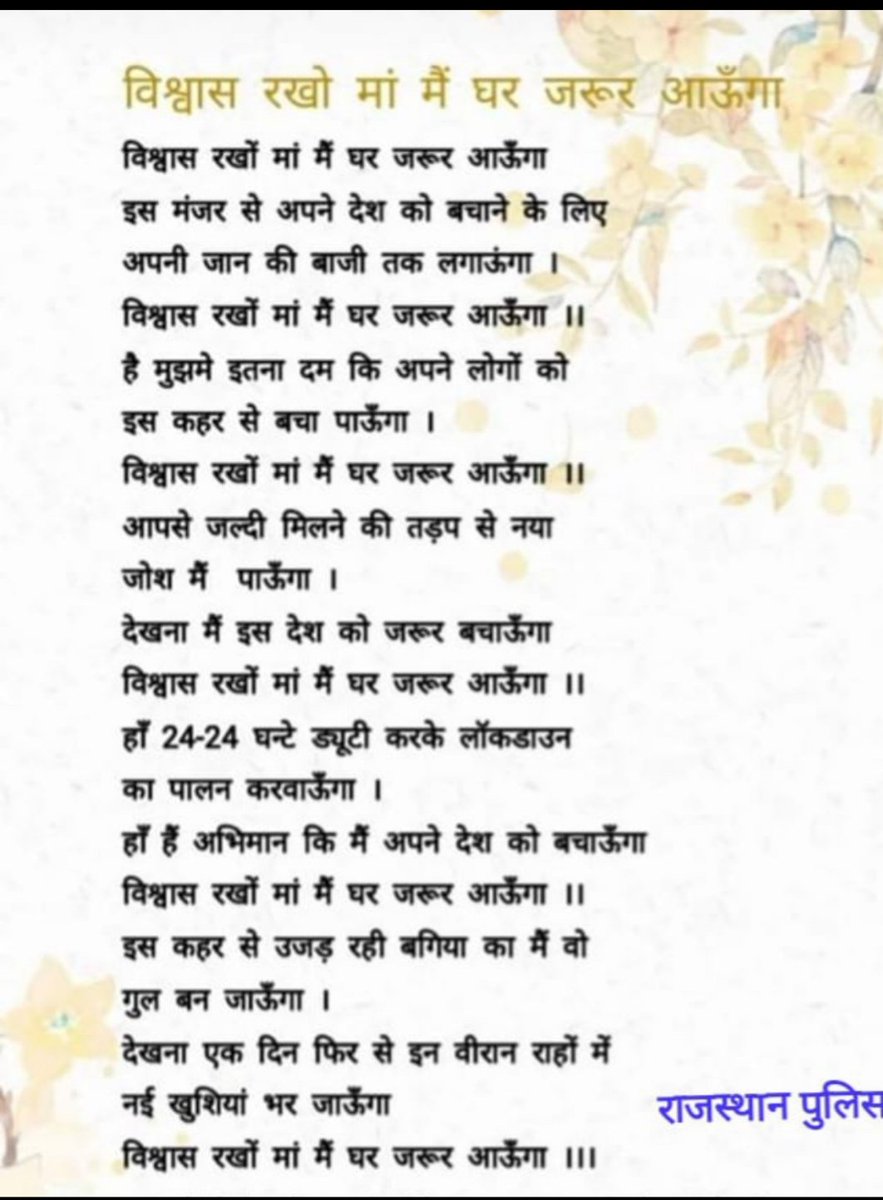 विश्वास रखो मां मैं घर जरूर आऊँगा
विश्वास रखों मां मैं घर जरूर आऊँगा
इस मंजर से अपने देश को बचाने के लिए
अपनी जान की बाजी तक लगाऊंगा ।
विश्वास रखों मां मैं घर जरूर आऊँगा ।।
है मुझमे इतना दम कि अपने लोगों को
इस कहर से बचा पाऊँगा ।
विश्वास रखों मां मैं घर जरूर आऊँगा ।।
आपसे जल्दी मिलने की तड़प से नया
जोश मैं पाऊँगा ।
देखना मैं इस देश को जरूर बचाऊँगा
विश्वास रखों मां मैं घर जरूर आऊँगा ।।
हाँ 24-24 घन्टे ड्यूटी करके लॉकडाउन
का पालन करवाऊँगा ।
हाँ हैं अभिमान कि मैं अपने देश को बचाऊँगा
विश्वास रखों मां मैं घर जरूर आऊँगा ।।
इस कहर से उजड़ रही बगिया का मैं वो
गुल बन जाऊँगा ।
देखना एक दिन फिर से इन वीरान राहों में
नई खुशियां भर जाऊँगा
राजस्थान पुलिस
विश्वास रखों मां मैं घर जरूर आऊँगा ।।।